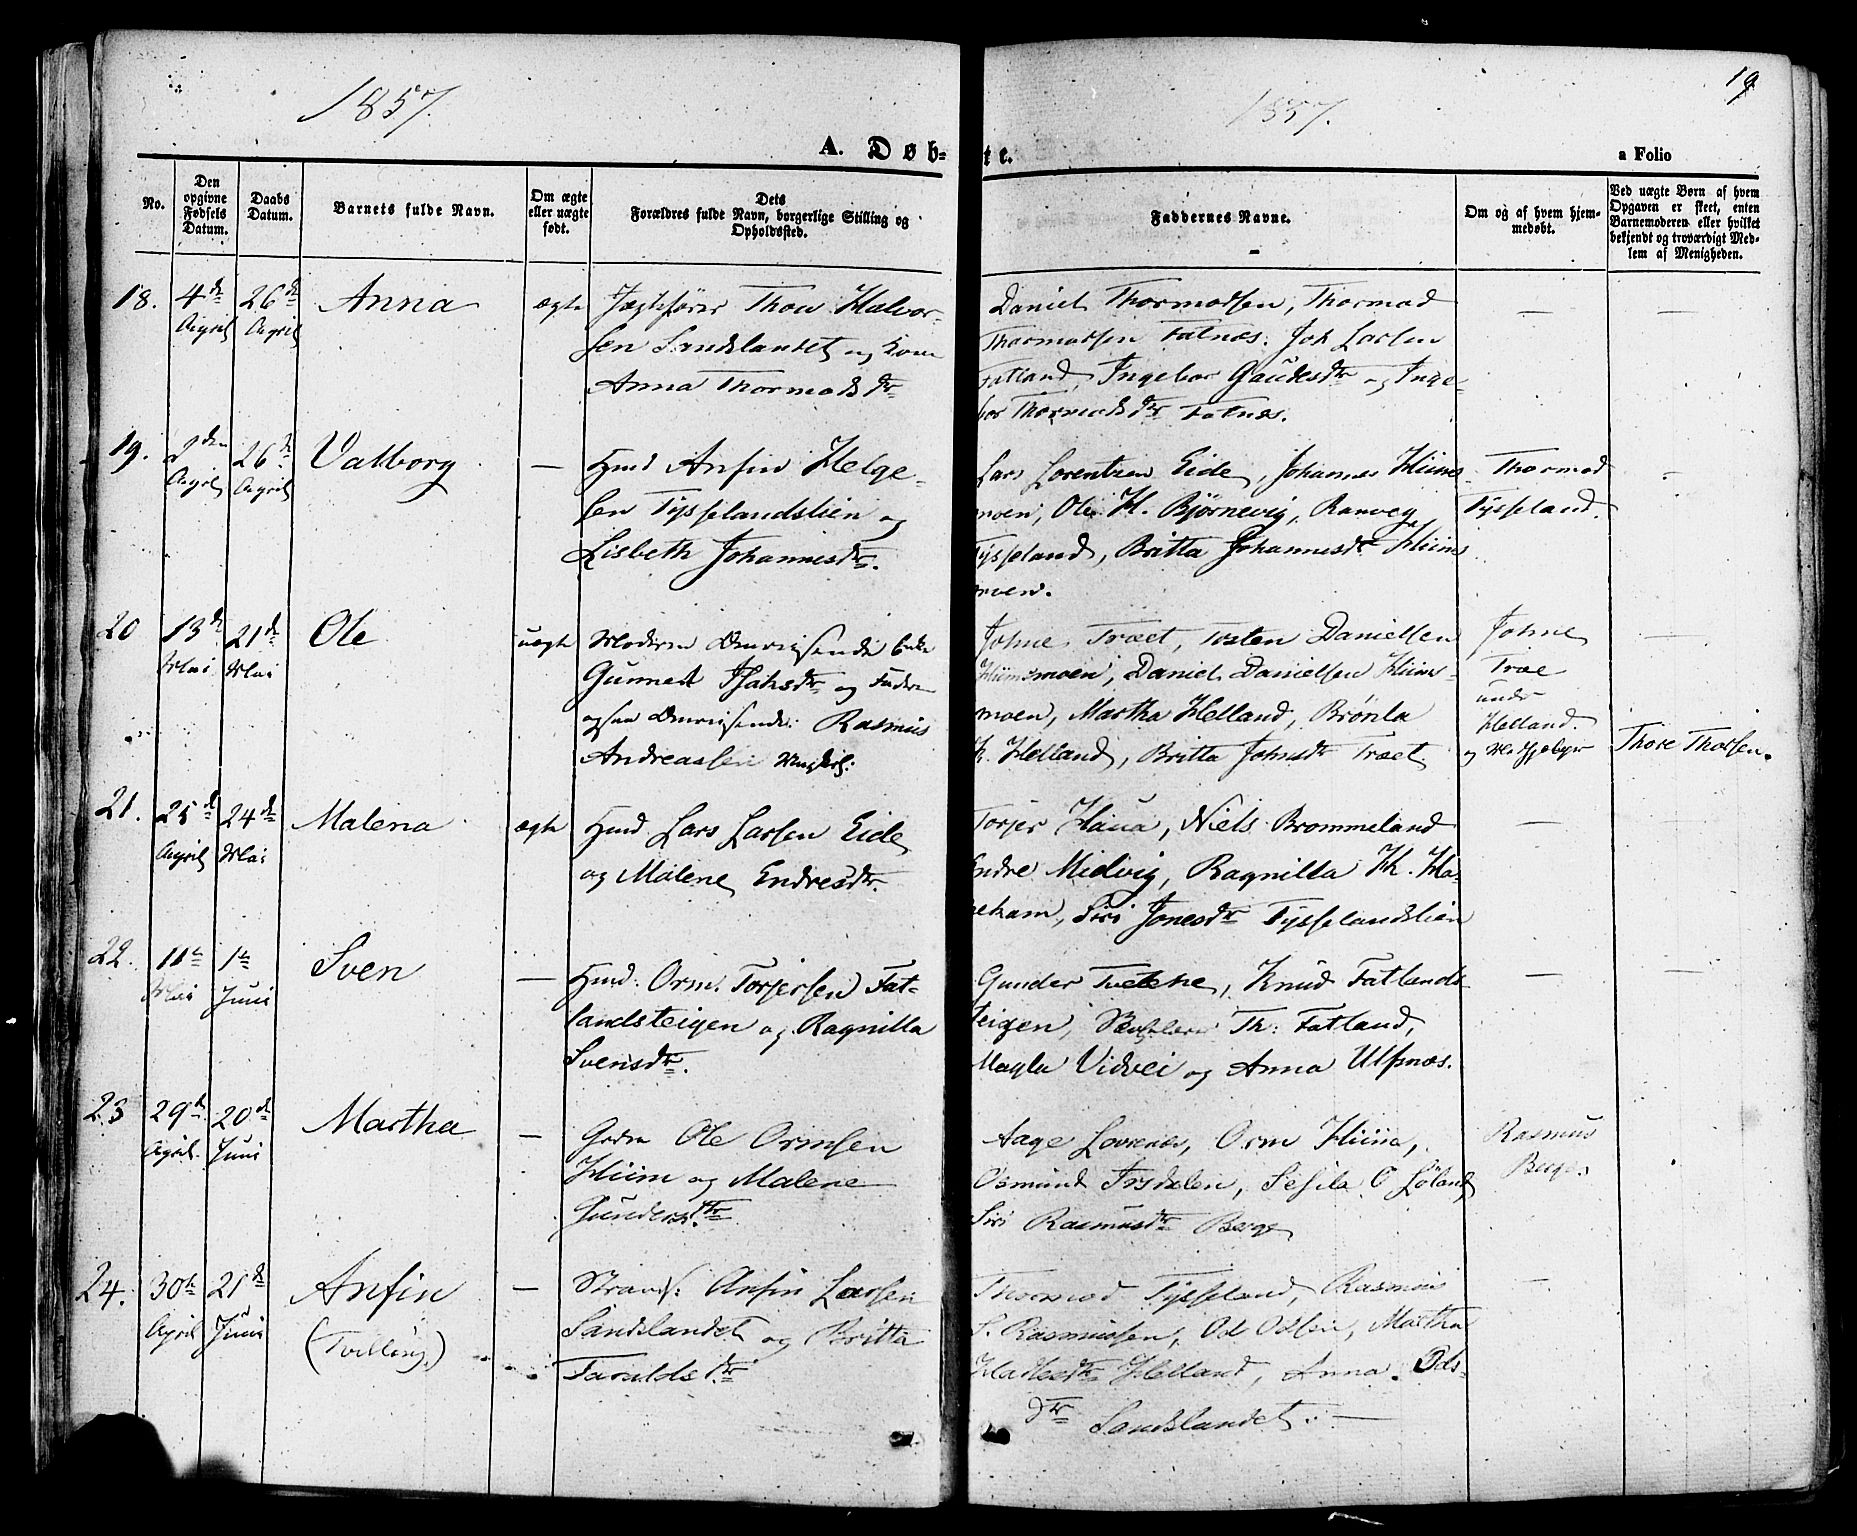 1857.
1857.
19
A. Døb-
te.
a Folio
No.
Den opgivne Fødsels Datum.
Daabs Datum.
Barnets fulde Navn.
Om ægte eller uægte født.
Dets Forældres fulde Navn, borgerlige Stilling og Opholdssted.
Faddernes Navne.
Om og af hvem hjem-
medøbt.
Ved uægte Børn af hvem
Opgaven er skeet, enten
Barnemoderen eller hvilket
bekjendt og troværdigt Med-
lem af Menigheden.
18. 4de April 26de April Anna ægte
Thow Halvor-
sen Sandslandet og Kone
Anna Thormodsdtr
Daniel Thormodsen, Thormod
Thormodsen Fatnæs. Joh Larsen
Fatland, Ingebor Gaudesdtr og Inge-
bor Thormodsdtr Fatnæs.
—
—
19. 2den April 26de April Valborg —
Hmd Anfin Helge-
sen Tysselandslien og
Lisbeth Johannesdtr.
Lars Lorentzen Eide, Johannes Hiims
moen, Ole H. Bjørnevig, Ranveg
Tysseland, Britta Johannesdtr Hiims
moen.
Thormod
Tysseland.
-
20 13de Mai 21de Mai Ole uægte
Moderen Omreisende Enke
Gunnel Isaksdtr og Faderen
ogsaa Omreisende: Rasmus
Andreassen
Johne Træet, Tosten Danielsen
Hiimsmoen, Daniel Danielsen Hiims-
moen, Martha Helland, Brønla
K. Helland, Britta Johnsdtr Træet.
Johne
Træe
under
Helland.
Thore Thorsen.
21. 25de April 24de Mai Malena ægte
Hmd Lars Larsen Eide
og Malene Endresdtr.
Torjer Haua, Niels Brommeland
Endre Midvig, Ragnilla H. Ha-
Siri Jonesdtr Tysselandslien
—
22. 11te Mai 1te Juni Sven —
Hmd: Orm Torjersen Fat-
landsteigen og Ragnilla
Svensdtr.
Gunder Tvetene, Knud Fatlands
teigen, Th: Fatland,
Magla Vidvei og Anna Ulfsnæs.
—
—
23 29de April 20de Juni Martha —
Ole Ormsen
Hiim og Malene
Gundersdtr.
Aage Lovrenæs, Orm Hiim,
Osmund Frydalen, Sesila O Løland
Siri Rasmusdtr Berge
Rasmus
Berge.
24. 30te April 21de Juni Anfin —
(Tvilling.)
Strands: Anfin Larsen
Sandslandet og Britta
Faraldsdtr
Thormod Tysseland, Rasmus
S. Rasmussen, Od Odsen, Martha
Helland, Anna Ods-
dtr Sandslandet. —